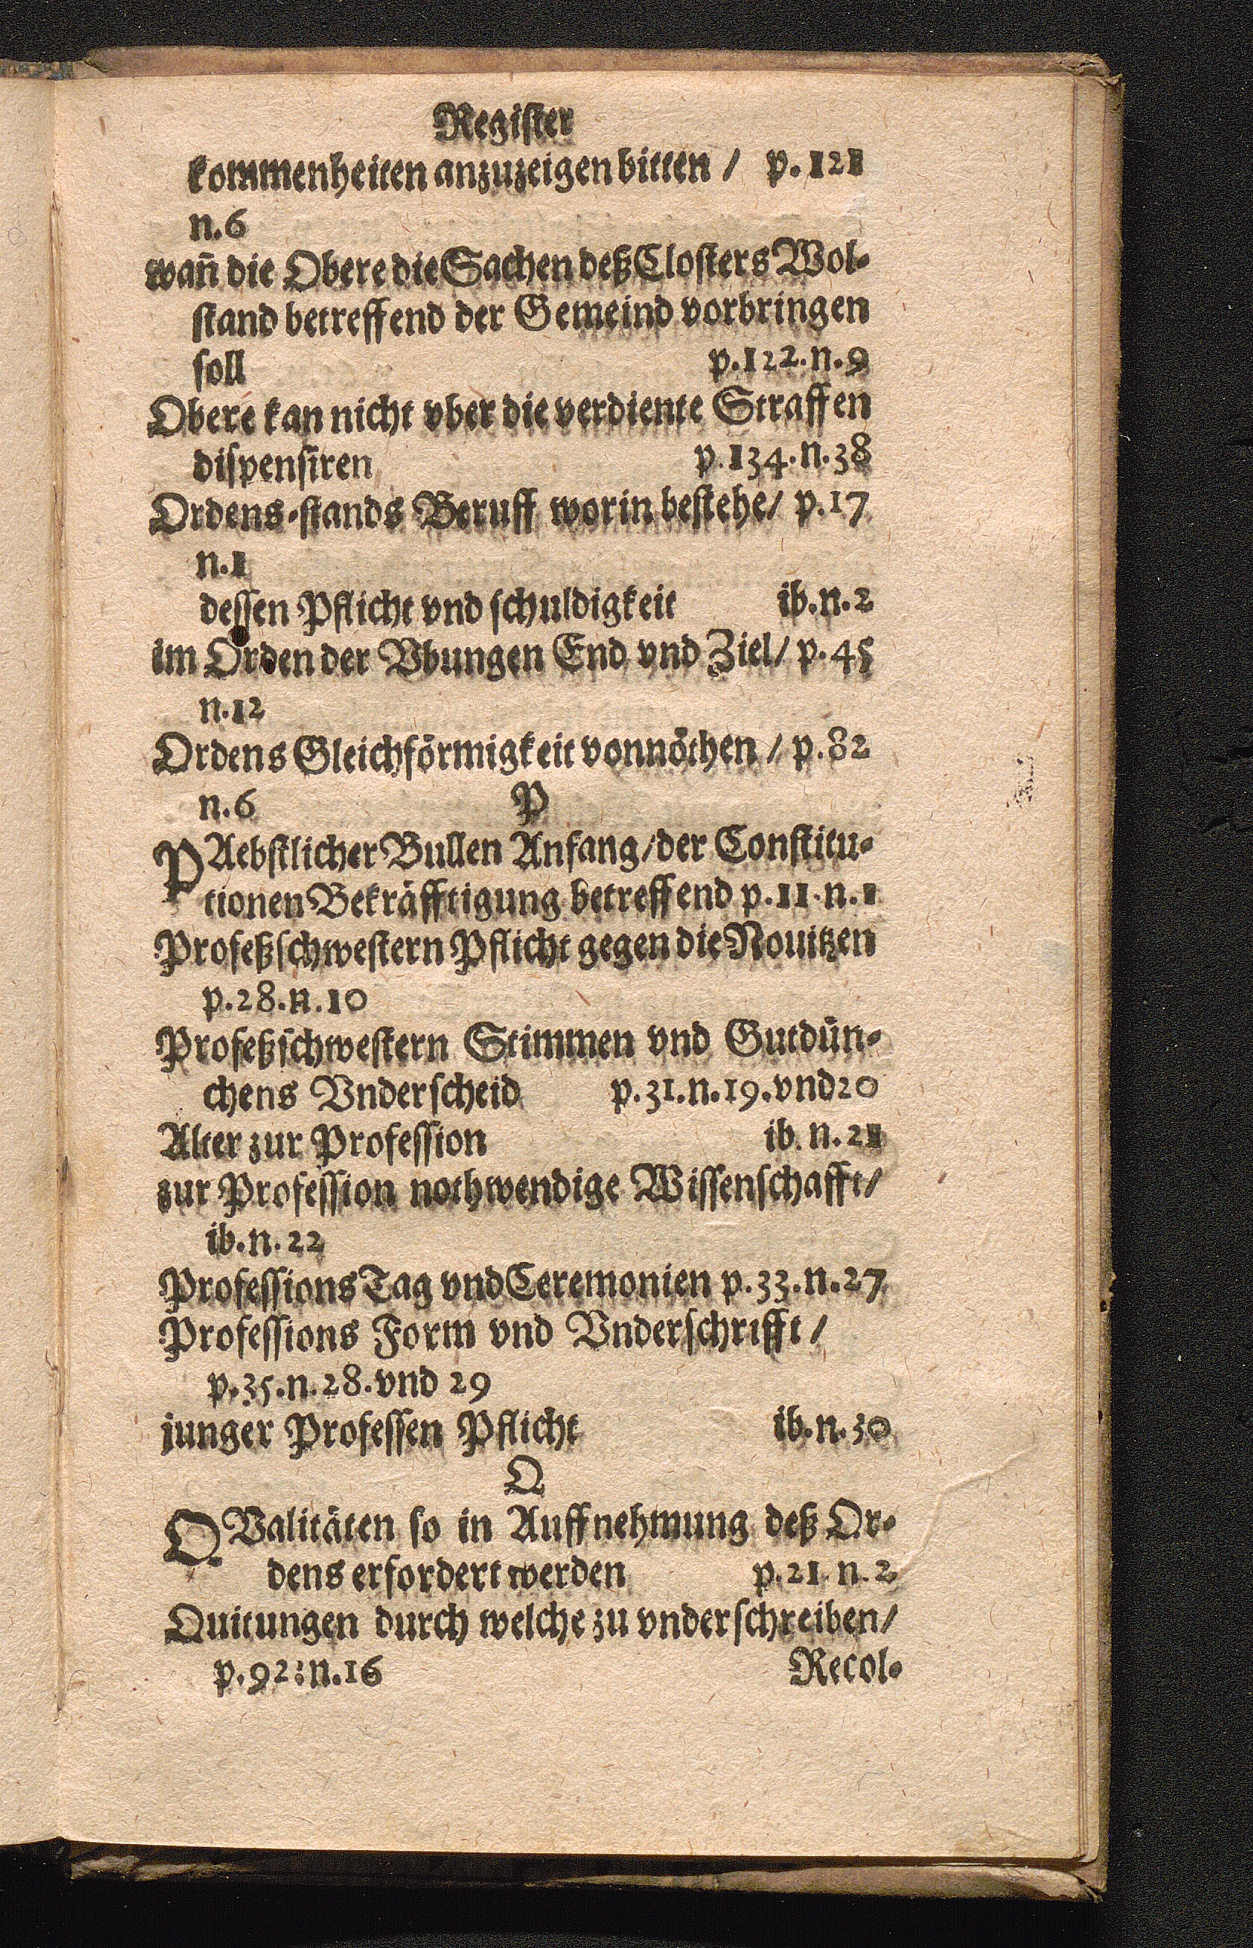 Register
kommenheiten anzuzeigen bitten / p. 121
n. 6
wañ die Obere die Sachen deß Closters Wol-
stand betreffend der Gemeind vorbringen
soll p. 122. n. 9
Obere kan nicht vber die verdiente Straffen
dispensiren p. 134. n. 38
Ordens-stands Beruff worin bestehe / p. 17
n. 1
dessen Pflicht vnd schuldigkeit ib. n. 2
im Orden der Vbungen End vnd Ziel / p. 45
n. 12
Ordens Gleichförmigkeit vonnöthen / p. 82
n. 6 P
PAebstlicher Bullen Anfang / der Constitu-
tionen Bekräfftigung betreffend p. 11. n. 1
Profeßschwestern Pflicht gegen die Nouitzen
p. 28. n. 10
Profeßschwestern Stimmen vnd Gutdün-
chens Vnderscheid p. 31. n. 19. vnd 20
Alter zur Profession ib. n. 21
zur Profession nothwendige Wissenschafft /
ib. n. 22
Professions Tag vnd Ceremonien p. 33. n. 27
Professions Form vnd Vnderschrifft /
p. 35. n. 28. vnd 29
junger Professen Pflicht ib. n. 30
Q
QValitäten so in Auffnehmung deß Or-
dens erfordert werden p. 21. n. 2
Quitungen durch welche zu vnderschreiben /
p. 92: n. 16 Recol-